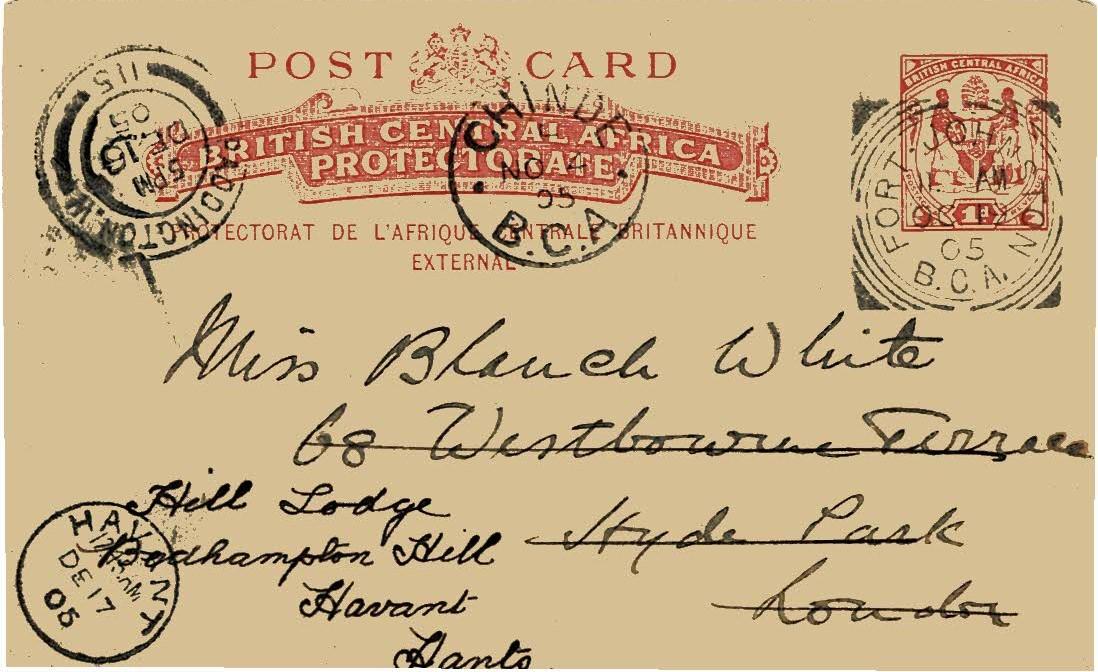 POST CARD
BRITISH CENTRAL AFRICA
PROTECTORATE
PROTECTORAT DE L'AFRIQUE CENTRALE BRITANNIQUE
EXTERNAL
BRITISH CENTRAL AFRICA
FORT. JOHNSTON
AM
OC
05
B.C.A.
CHINDE
NO 4
05
B.C.A
PADDINGTON.W.
5PM
DE 16
05
115
Miss Blanch White
68 Westbourne Terrace
Hyde Park
London
Hill Lodge
Bedhampton Hill
Havant
Hants
HAVANT
DE 17
05